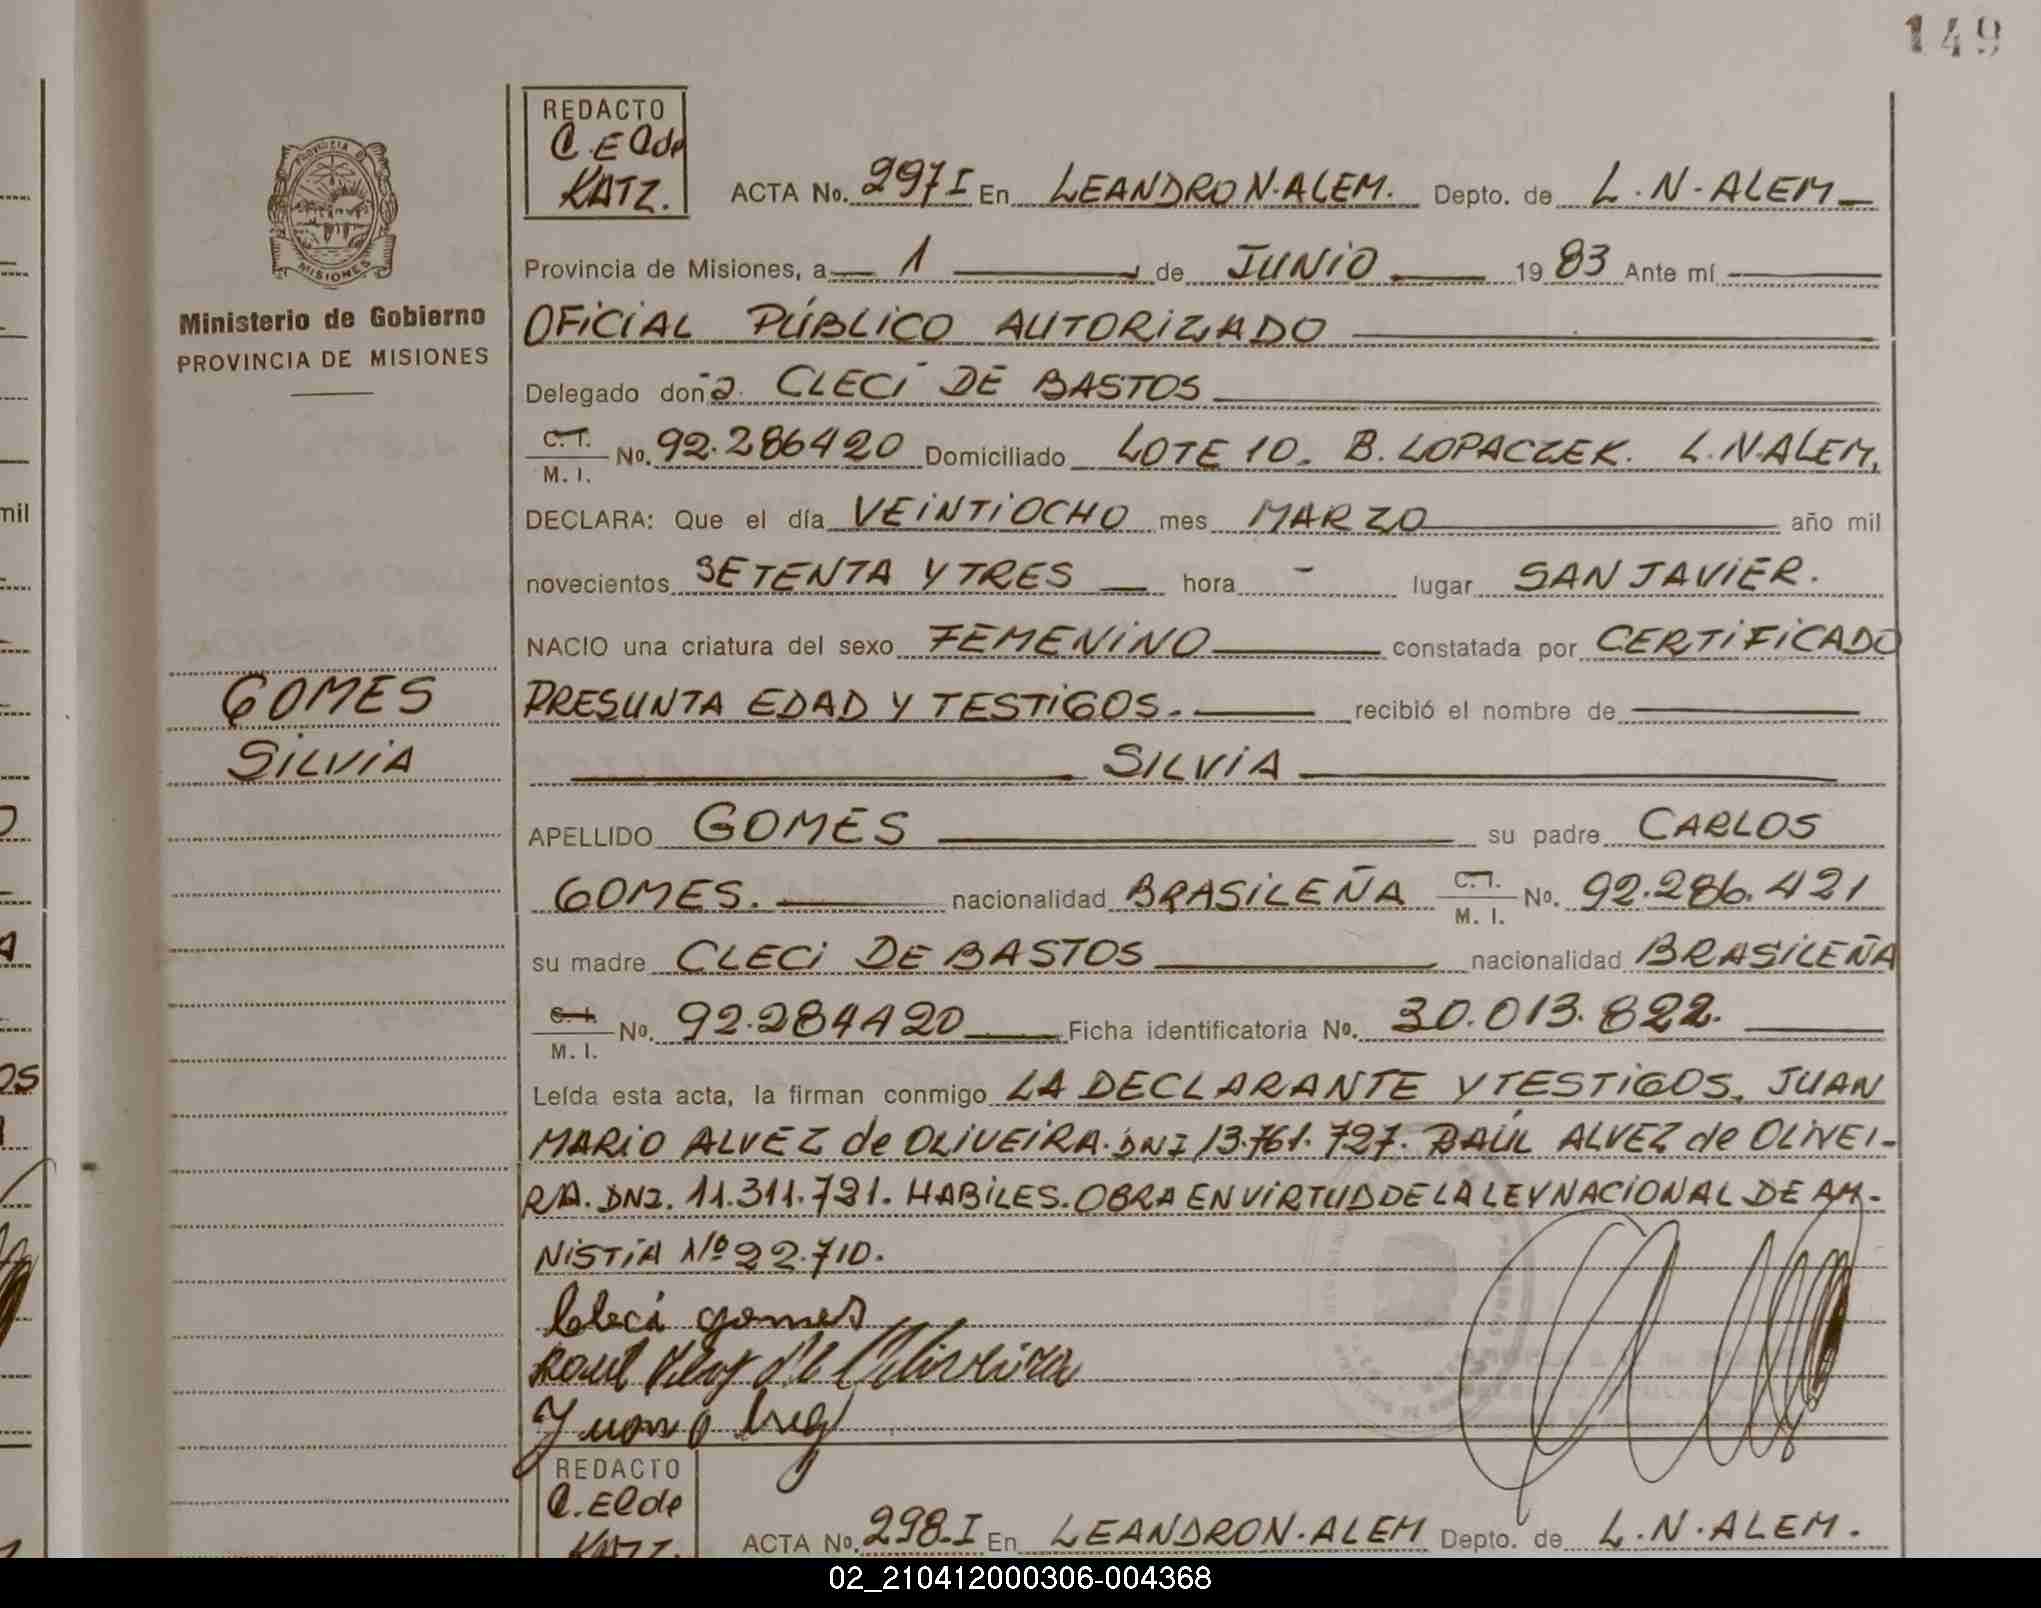 149
REDACTO
C. E Cde
KATZ.
ACTA No. 297 I En LEANDRO N. ALEM. Depto. de L. N. ALEM
Provincia de Misiones, a 1 de JUNIO 1983 Ante mí
OFICIAL PÚBLICO AUTORIZADO
Delegado doña CLECI DE BASTOS
C. I.
M. I. No. 92.286420 Domiciliado LOTE 10. B. LOPACZEK. L.N.ALEM.
DECLARA: Que el día VEINTIOCHO mes MARZO año mil
novecientos SETENTA Y TRES hora - lugar SAN JAVIER.
NACIO una criatura del sexo FEMENINO constatada por CERTIFICADO
PRESUNTA EDAD Y TESTIGOS. recibió el nombre de
SILVIA
APELLIDO GOMES su padre CARLOS
GOMES. nacionalidad BRASILEÑA C. I. M. I. No. 92.286.421
su madre CLECI DE BASTOS nacionalidad BRASILEÑA
C. I.
M. I. No. 92.284420 Ficha identificatoria No. 30.013.822.
Leída esta acta, la firman conmigo LA DECLARANTE Y TESTIGOS. JUAN
MARIO ALVEZ de OLIVEIRA. DNI 13.761.727. RAÚL ALVEZ de OLIVEI-
RA. DNI. 11.311.721. HABILES. OBRA EN VIRTUD DE LA LEY NACIONAL DE AM-
NISTIA Nº 22.710.
Cleci gomes
Raul de Oliveira
PROVINCIA DE
MISIONES
Ministerio de Gobierno
PROVINCIA DE MISIONES
GOMES
SILVIA
REDACTO
C. El de
KATZ.
ACTA No. 298-I En LEANDRO N. ALEM Depto. de L. N. ALEM.
mil
02_210412000306-004368